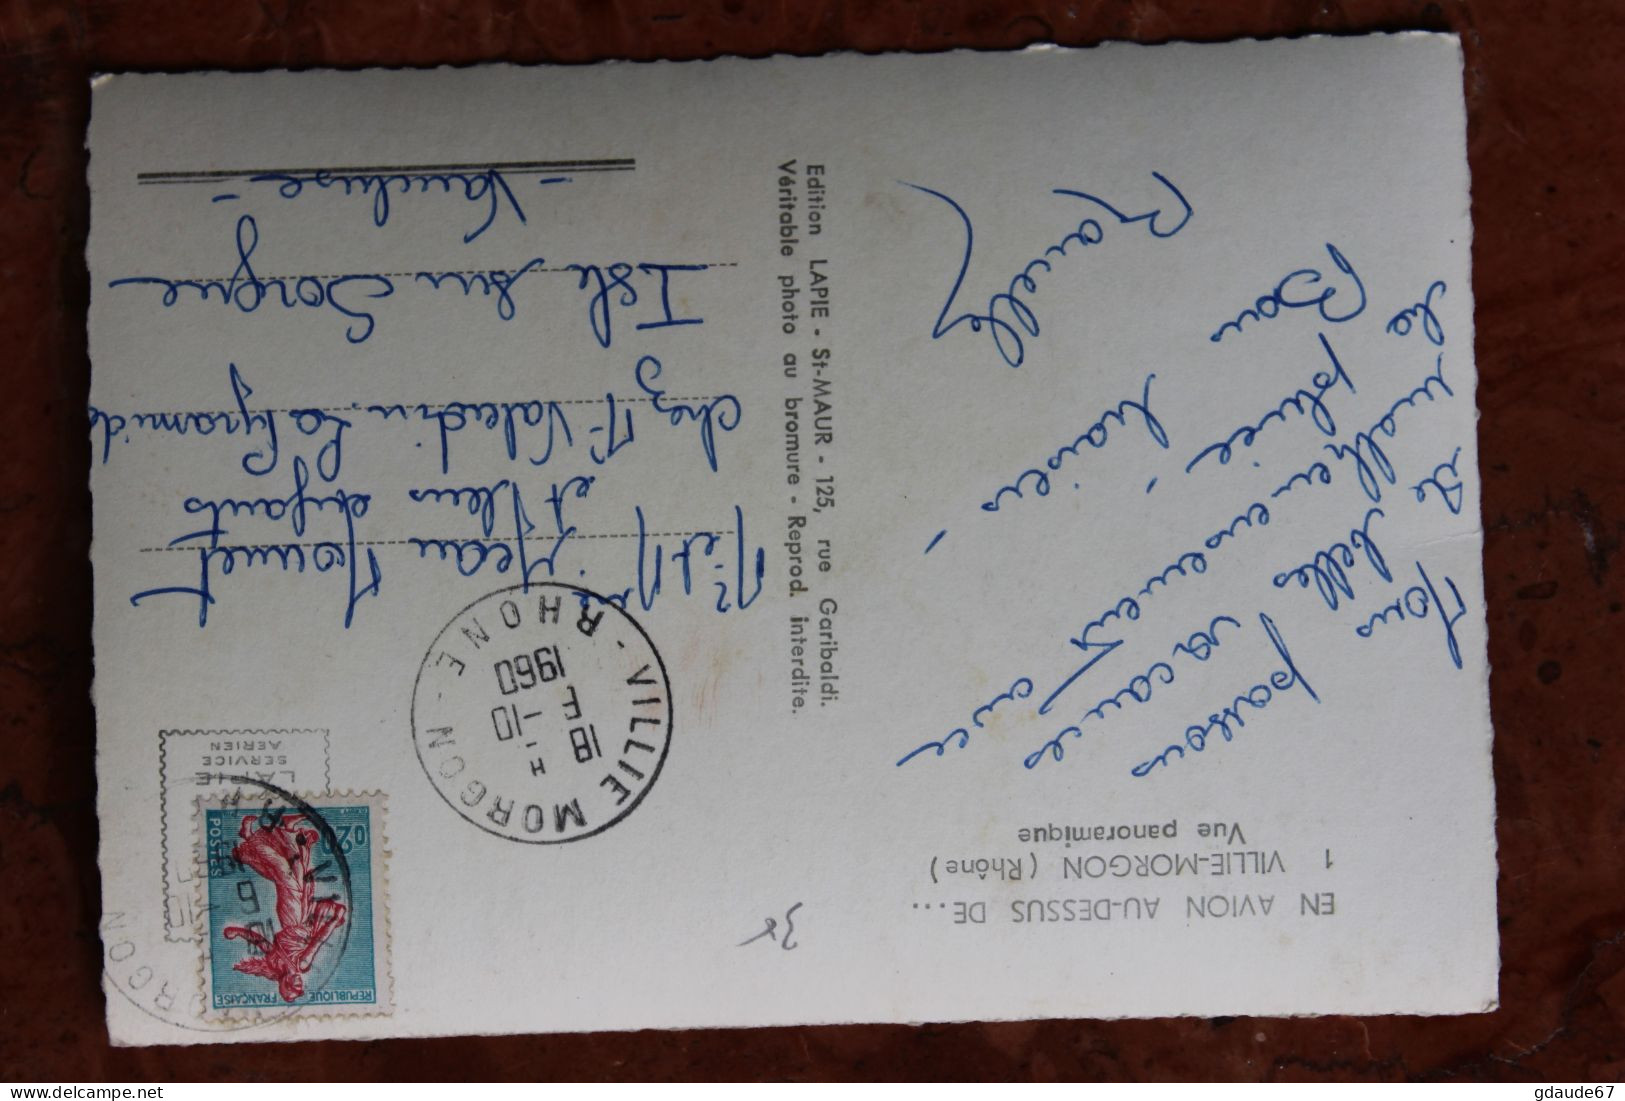 EN AVION AU-DESSUS DE...
1 VILLIE-MORGON (Rhône)
Vue panoramique
Nous passons
de belles vacances
malheureusement avec
la pluie.
Bons baisers
Edition LAPIE - St-MAUR - 125, rue Garibaldi.
Véritable photo au bromure - Reprod. interdite.
LAPIE
SERVICE
AERIEN
REPUBLIQUE FRANÇAISE
0,20
POSTES
VILLIE MORGON - RHONE -
18 H - 10
1960
ORGON
Mr et Mme Jean
et leurs enfants
chez Mr Valentin La Pyramide
Isle sur Sorgue
- Vaucluse -
3x
gdaude67